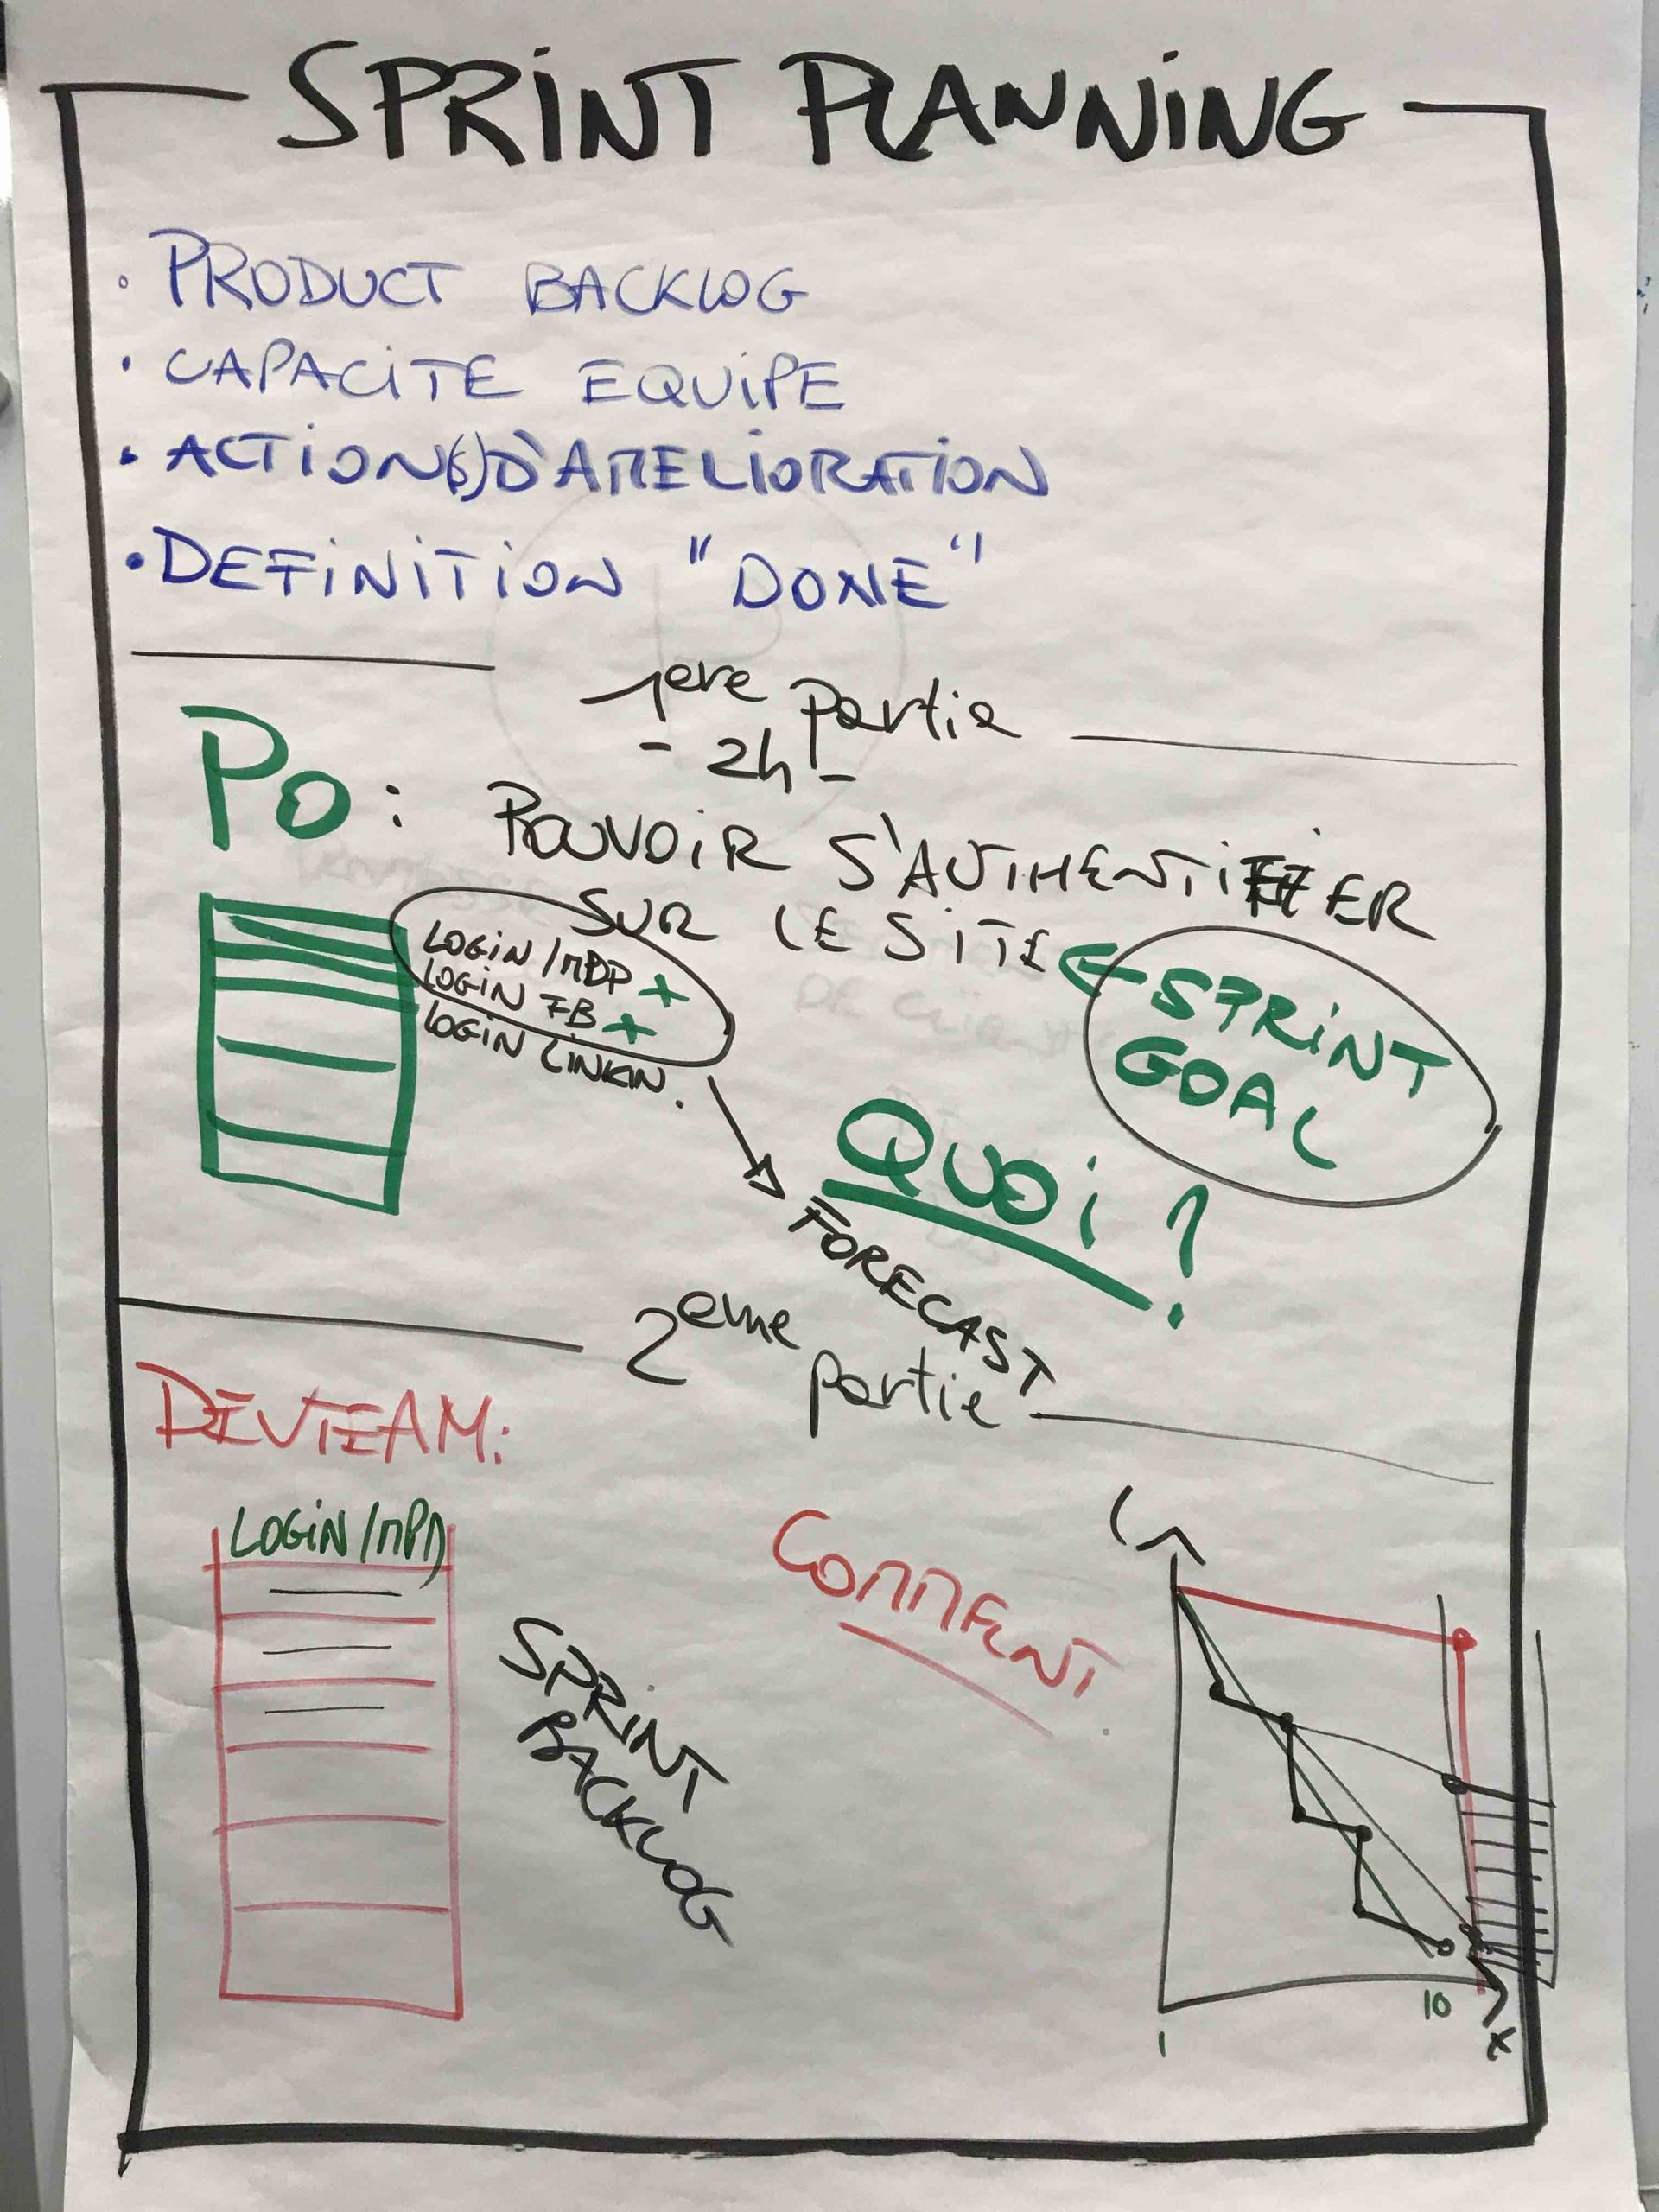 SPRINT PLANNING
• PRODUCT BACKLOG
• CAPACITE EQUIPE
• ACTION(S) D'AMELIORATION
• DEFINITION "DONE"
1ere Partie
- 2h -
PO : POUVOIR S'AUTHENTIFIER
SUR LE SITE
← SPRINT
GOAL
LOGIN / MDP +
LOGIN FB +
LOGIN LINKIN.
QUOI ?
FORECAST
2eme
partie
DEVTEAM:
LOGIN / MPD
SPRINT
BACKLOG
COMMENT
1
10